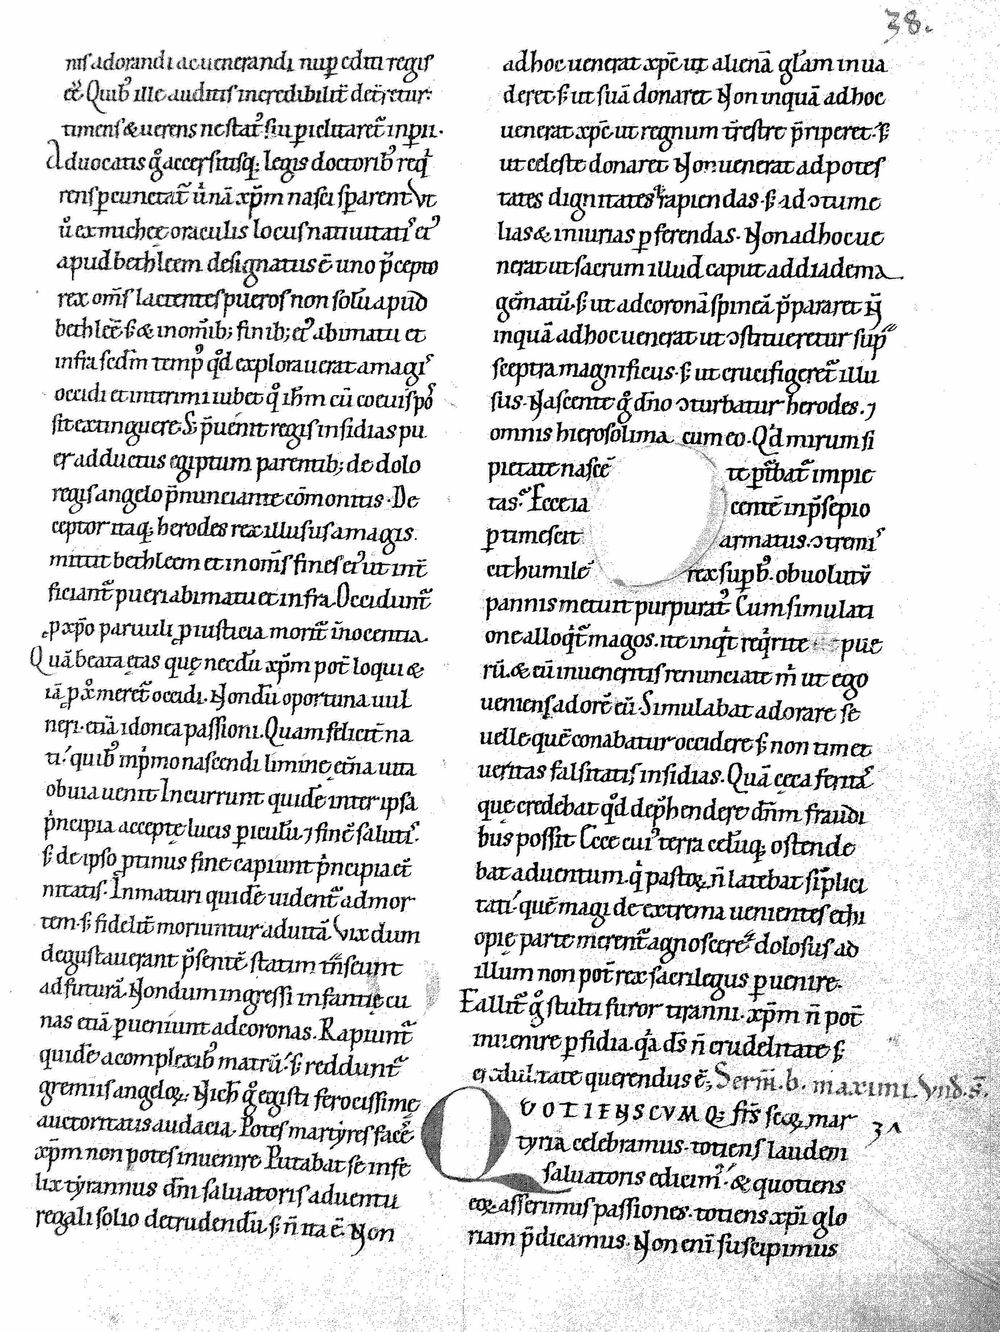 38.
nis adorandi ac uenerandi nup̱ edm̄ regis
eē̄ Quib᷒ ille auditis incredibilit̄ det̄retur·
timens & uerens ne stat᷒ sui p̱iclitaret̄ inp̱ii·
Aduocatis g̊ accersitisq; legis doctorib᷒ req̇
rens p̱cunctat̄ u̇nā xp̄m nasci sp̱arent Vt
u̇ ex michee oraculis locus natiuitati᷒ ei᷒
apud bethleem designatus ē uno p̄cepto
rex om̄s lactentes pueros non solū apud
bethleē s; & in om̄ib; finib; ei᷒ abimatu et
infra sedm̄ temp᷒ qd̄ explorauerat a magi᷒
occidi et interimi iubet q᷒ ih̄m cū coeuis po᷒
sit extinguere S; p̄uenit regis insidias pu
er adductus egiptum parentib; de dolo
regis angelo p̄nunciante cōmonitus· De
ceptor itaq; herodes rex illusus a magis
mittit bethleem et in om̄s fines ei᷒ ut int̄
ficiant̄ pueri abimatu et infra. Occidunt̄
p xp̄o paruuli p iusticia morit̄ inocentia
Quā beata etas quę necdū xp̄m pot̄ loqui &
iā p xo᷒ meret̄ occidi. Nondū oportuna uul
neri· etiā idonea passioni. Quam felicit̄ na
ti quib᷒ in ṗmo nascendi limine et̄na uita
obuia uenit Incurrunt quidē inter ipsa
ṗncipia accepte lucis p̱iculū ⁊ finē saluti᷒.
s; de ipso p̱tinus fine capiunt ṗncipia et̄
nitatis. Inmaturi quidē uident̄ ad mor
tem· s; fidelit̄ moriuntur ad uitā. Vix dum
degustauerant p̄sentē statim tn̄seunt
ad futurā. Nondum ingressi infantię cu
nas etiā p̱ueniunt ad coronas. Rapiunt̄
quidē a complexib᷒ matrū s; reddunt̄
gremiis angeloꝝ. Nich̄ g̊ egisti ferocissime
auctoritatis audacia. Potes martýres facē̄
xp̄m non potes inuenire Putabat se infe
lix tyrannus dn̄i saluatoris aduentu
regali solio detrudendū s; n̄ ita ē. Non
adhoc uenerat xp̄c ut alienā gl̄am inua
deret s; ut suā donaret Non inquā adhoc
uenerat xp̄c ut regnum tr̄estre p̄riperet· s;
ut celeste donaret Non uenerat ad potes
tates dignitates rapiendas· s; ad ↄtume
lias & iniurias p̱ferendas· Non adhoc ue
nerat ut sacrum illud caput ad diadema
gēmatū· s; ut ad coronā spineā p̄pararet N̄
inquā adhoc uenerat ut ↄstitueretur sup̱
sceptra magnificus· s; ut crucifigeret̄ illu
sus· Nascente g̊ dn̄o ↄturbatur herodes. ⁊
omnis hierosolima cum eo. Qd̄ mirum si
pietate nascē te pt̄bat̄ impie
tas. Ecce ia centē in p̄sepio
p̱timescit armatus. ↄtremi᷒
cit humilē rex sup̱b᷒. obuolutū
pannis metuit purpurat᷒ Cum simulati
one alloq̇t̄ magos. ite inq̇t req̇rite pue
rū. & cū inueneritis renunciate ṁ ut ego
ueniens adorē eū Simulabat adorare se
uelle quē conabatur occidere s; non timet
ueritas falsitatis insidias. Quā ceca ferita᷒
quę credebat qd̄ dep̄hendere dn̄m fraudi
bus possit Ecce cui᷒ terra celūq; ostende
bat aduentum· q̇ pastoꝝ n̄ latebat simplici
tati· quē magi de extrema uenientes ethi
opię parte merent̄ agnoscere· dolosus ad
illum non pot̄ rex sacrilegus p̱uenire·
Fallit̄ g̊ stulti furor tiranni· xp̄m n̄ pot̄
inuenire p̱fidia· q̇a ds̄ n̄ crudelitate s;
credulitate querendus ē; Serm̄. b. maximi. Vnd. s̄.
QVOTIENSCVMQ; frs̄ scꝝ mar
tyria celebramus· totiens laudem 31
saluatoris edicim᷒· & quotiens
eoꝝ asserimus passiones· totiens xp̄i glo
riam p̄dicamus· Non eni suscipimus